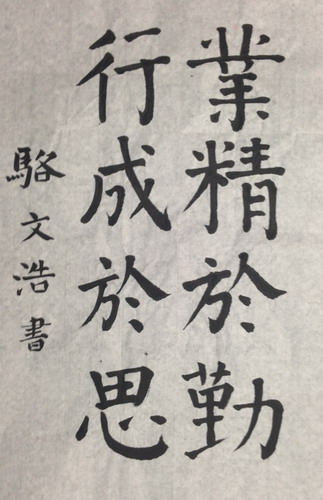 業精於勤
行成於思
駱文浩書